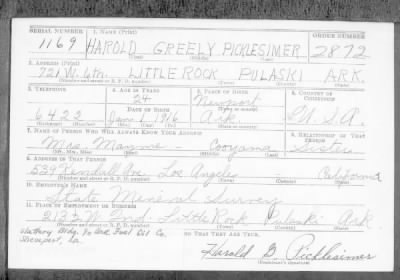 SERIAL NUMBER 1. NAME (Print) ORDER NUMBER
1169 HAROLD GREELY PICKLESIMER 2872
(First) (Middle) (Last)
2. ADDRESS (Print)
721 W. 6th. LITTLE ROCK PULASKI ARK.
(Number and street or R. F. D. number) (Town) (County) (State)
3. TELEPHONE 4. AGE IN YEARS 5. PLACE OF BIRTH 6. COUNTRY OF CITIZENSHIP
24 Newport
DATE OF BIRTH (Town or county)
6422 Jan 1 1916 Ark U.S.A.
(Exchange) (Number) (Mo.) (Day) (Yr.) (State or country)
7. NAME OF PERSON WHO WILL ALWAYS KNOW YOUR ADDRESS 8. RELATIONSHIP OF THAT PERSON
Mrs. — Sister
(Mr., Mrs., Miss) (First) (Middle) (Last)
9. ADDRESS OF THAT PERSON
539 Kendall Ave Los Angeles — California
(Number and street or R. F. D. number) (Town) (County) (State)
10. EMPLOYER'S NAME
State Mineral Survey
11. PLACE OF EMPLOYMENT OR BUSINESS
213½ W. 2nd. Little Rock Pulaski Ark
(Number and street or R. F. D. number) (Town) (County) (State)
Bldg. % Ark Fuel Oil Co. THAT THEY ARE TRUE.
Shreveport, La.
Harold G. Picklesimer
(Registrant's signature)